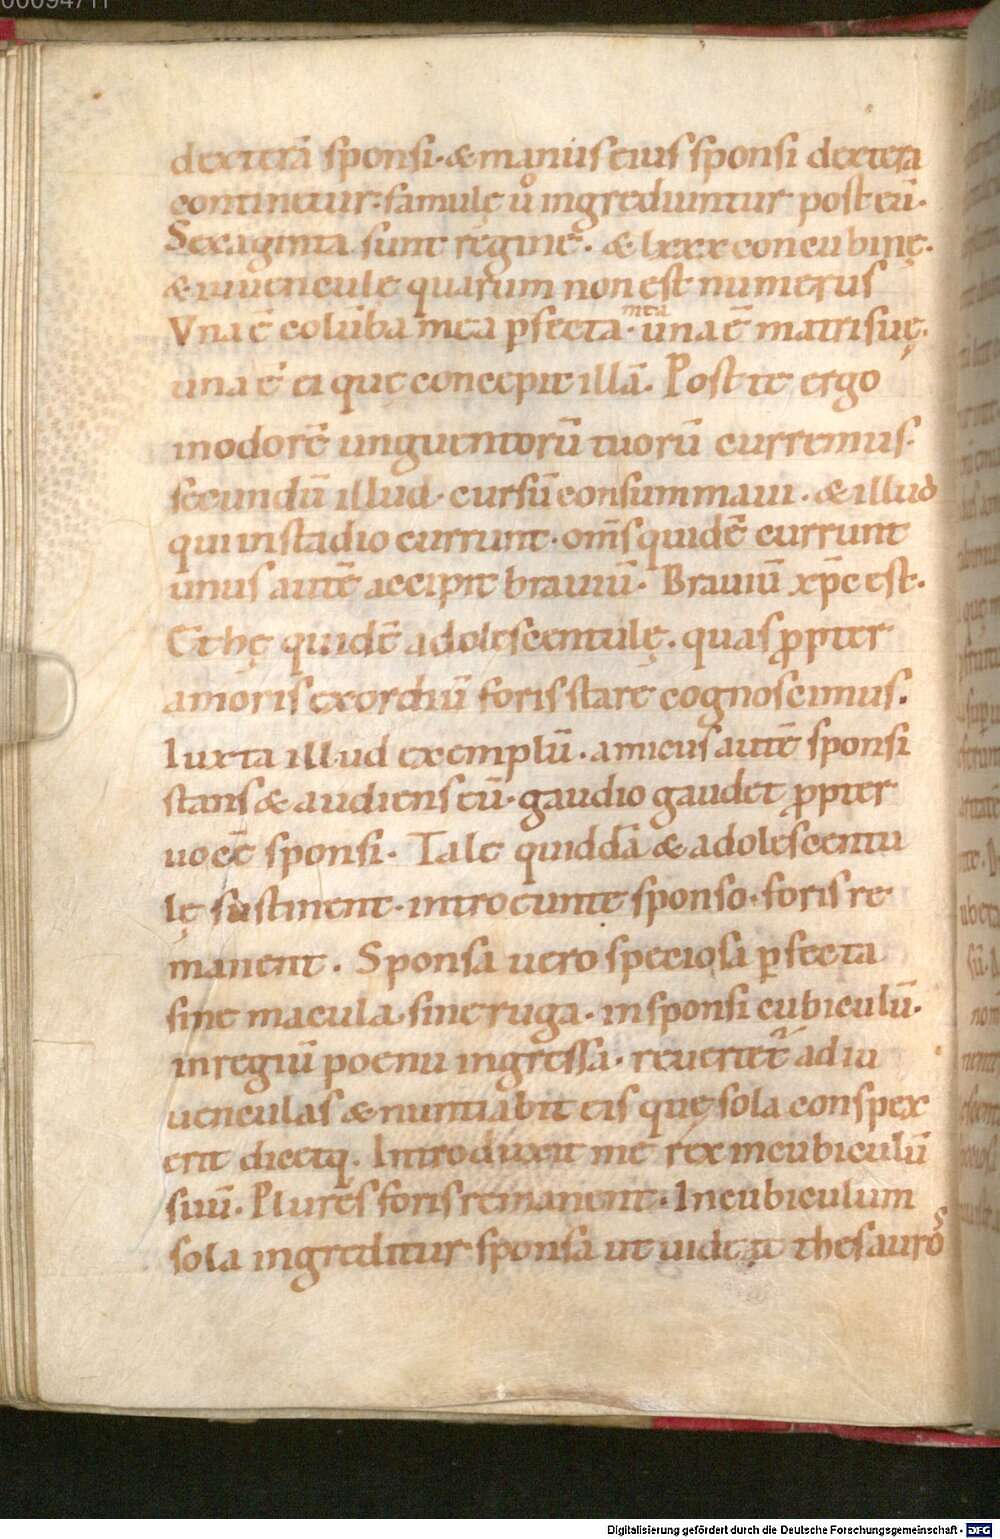 00094711
dexterā sponsi · & manus eius sponsi dextera
continetur · famulę ů ingrediuntur post eū ·
Sexaginta sunt reginę · & lxxx concubinę ·
& iuuencule quarum non est numerus
Vna ē colūba mea pfecta · una ē mea matri suę ·
una ē ei que concepit illā · Post te ergo
in odorē unguentorū tuorū curremus ·
secundū illud · cursū consummaui · & illud
qui in stadio currunt · om̄s quidē currunt
unus autē accipit brauiū · Brauiū xp̄c est ·
Et hę quidē adolescentulę · quas ꝓpter
amoris exordiū foris stare cognoscimus ·
Iuxta illud exemplū · amicus autē sponsi
stans & audiens eū · gaudio gaudet ꝓpter
uocē sponsi · Tale quiddā & adolescentu
lę sustinent · introeunte sponso · foris re
manent · Sponsa uero speciosa ꝑfecta
sine macula · sine ruga · in sponsi cubiculū ·
in regiū penu ingressa · reuertet̄ ad iu
uenculas & nuntiabit eis quę sola conspex
erit dicetq · Introduxit me rex in cubiculū
suū · Plures foris remanent · In cubiculum
sola ingreditur sponsa ut uideat thesauros
Digitalisierung gefördert durch die Deutsche Forschungsgemeinschaft - DFG